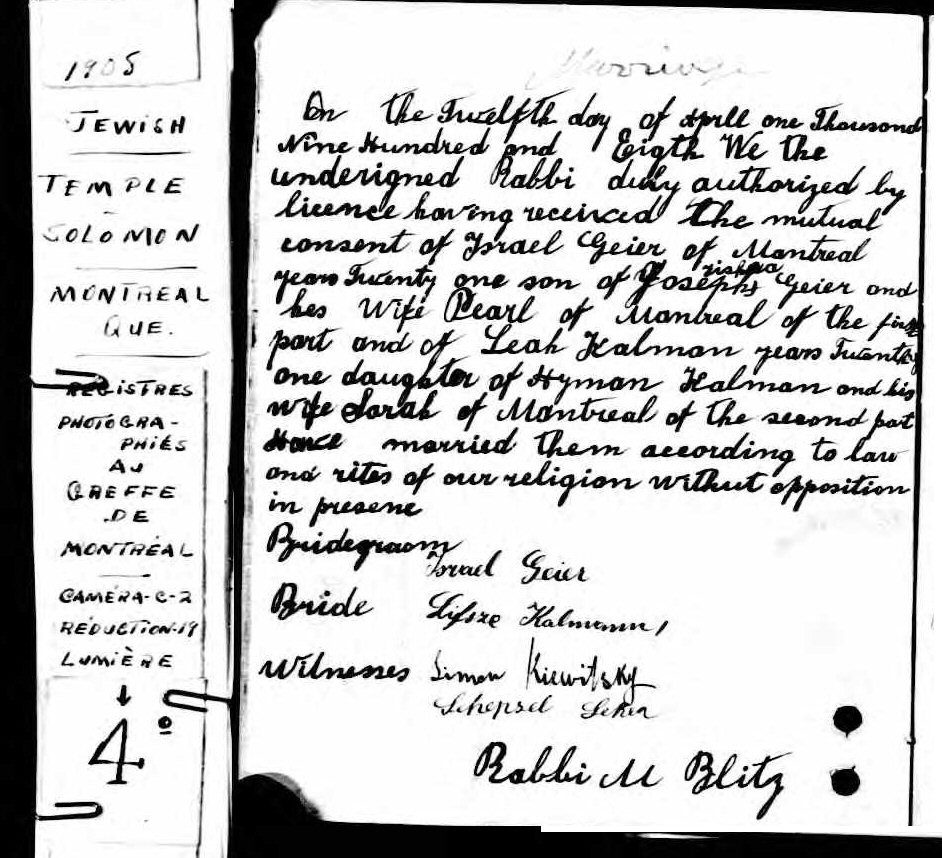 1908
JEWISH
TEMPLE
SOLOMON
MONTREAL
QUE.
REGISTRES
PHOTOGRA-
PHIÉS
AU
GREFFE
DE
MONTRÉAL
CAMÉRA-C-2
RÉDUCTION-19
LUMIÈRE
4º
Marriage
On the Twelfth day of Aprll one Thousand
Nine Hundred and Eigth We the
undersigned Rabbi duly authorized by
licence having received the mutual
consent of Israel Geier of Montreal
years Twenty one son of Joseph Geier and
hes Wife Pearl of Montreal of the first
part and of Leah Kalman years Twenty
one daugater of Hyman Kalman and his
wife Sarah of Montreal of the second part
married them according to law
and rites of our religion without opposition
in presene
Bridegraom Israel Geier
Bride Lifsze Kalmann
Witnesses Simon Kiewitsky
Schepsel
Rabbi M Blitz